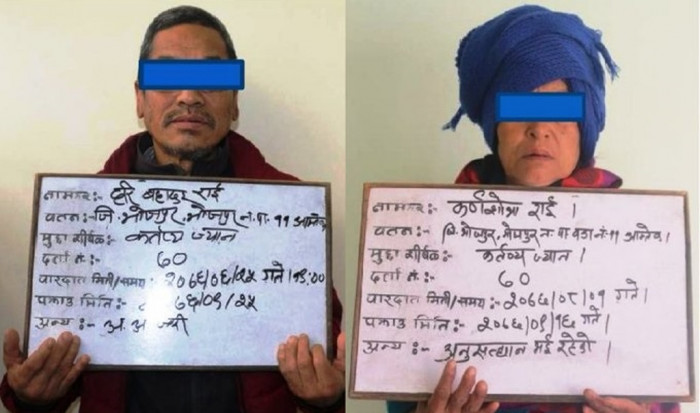 नामथर:- हरि बहादुर राई
वतन:- जि. भोजपुर, भोजपुर न.पा. ११
मुद्दा शीर्षक:- कर्तव्य ज्यान
दर्ता नं.:- ६०
वारदात मिति/समय:- २०७६/०८/
पक्राउ मिति:-
अन्य:- अ. अ जारी
नामथर:- राई ।
वतन:- जि. भोजपुर, भोजपुर न पा वडा नं ११
मुद्दा शीर्षक:- कर्तव्य ज्यान ।
दर्ता नं.:- ६०
वारदात मिति/समय:- २०७६/०८/०१ गते ।
पक्राउ मिति:- २०७६/०९/१६ गते ।
अन्य:- अनुसन्धान भई रहेको